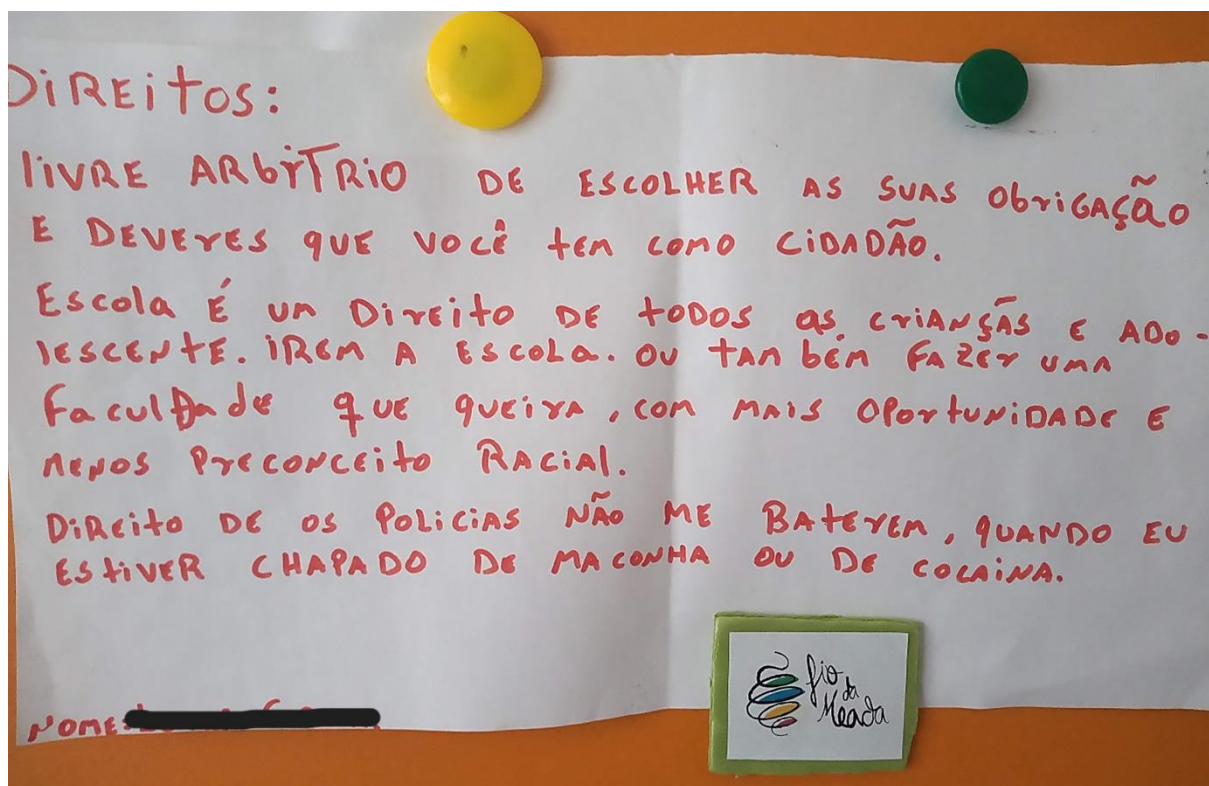 DiREitos:
livRE ARbiTRio DE ESCOLHER AS SUAS ObriGAção
E DEVERES QUE VOCÊ tEM COMO CiDADÃO.
Escola É UM Direito DE tODOS as CriANÇÃS E ADO-
lESCENtE. iREM A EScoLa. OU tAMbém FAZEr UMA
Faculdade QUE QUEirA, COM MAIS OPortUNiDADE E
MENOS PrECONCEito RACiAl.
DiREito DE OS POLiCiAS NÃO ME BAtEREM, QUANDO EU
EStiVER CHAPADO DE MACONHA OU DE COCAiNA.
NOME:
fio da Meada